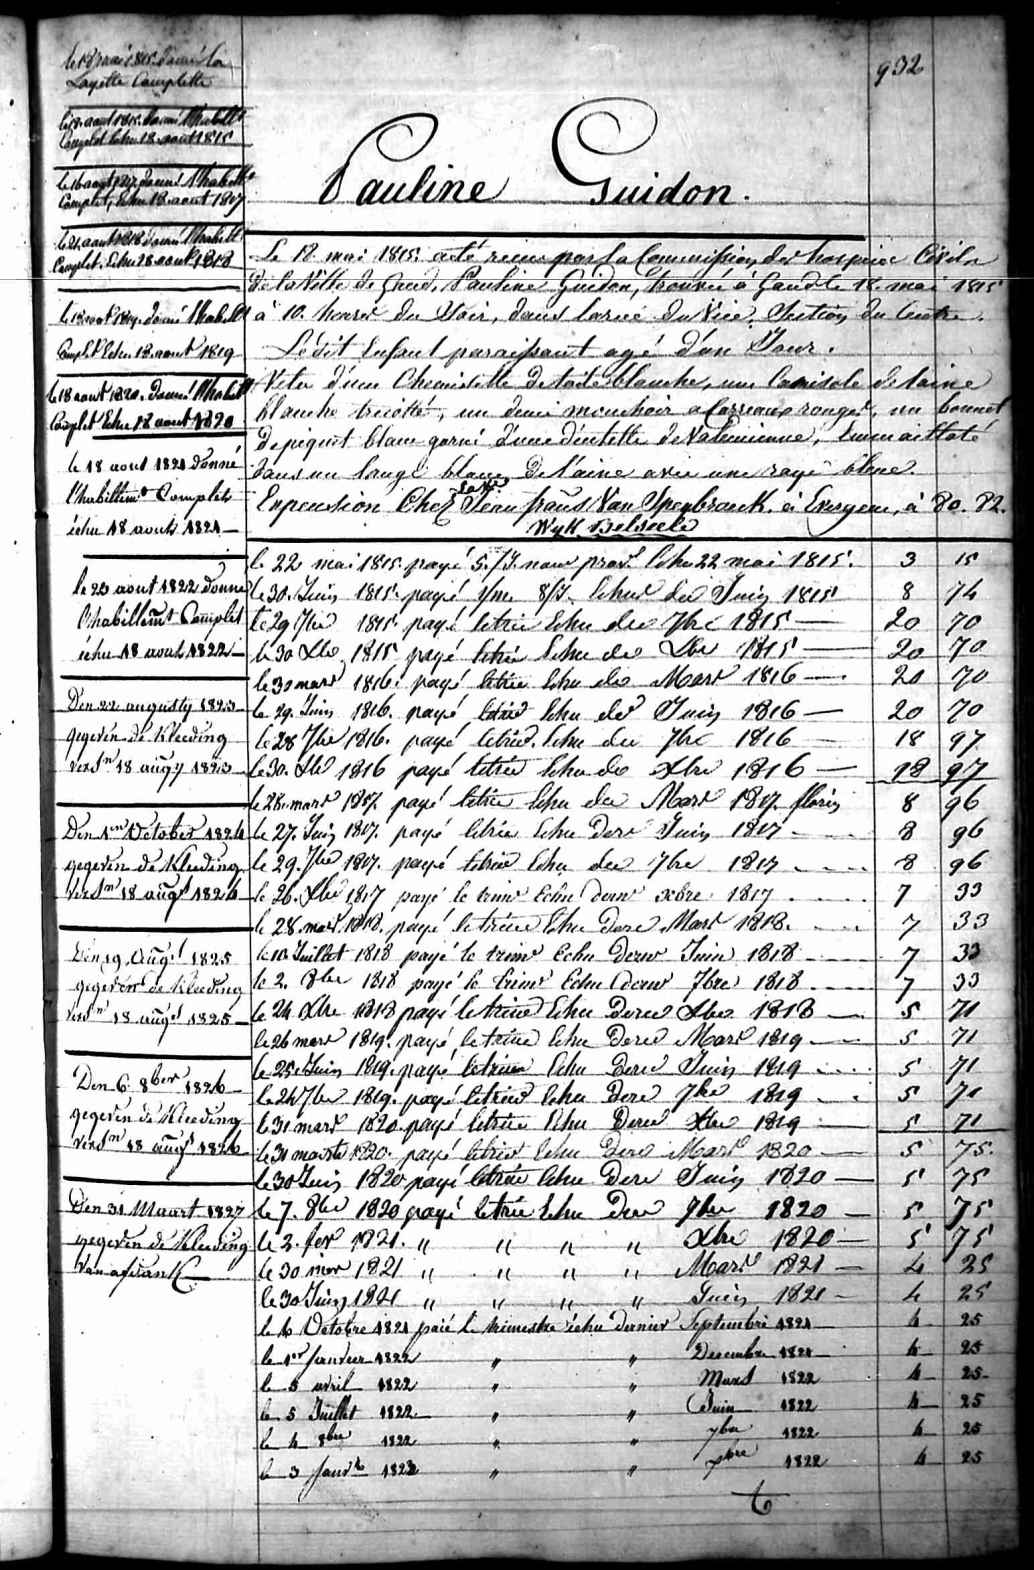 932
Pauline Guidon.
le 18 mai 1815. donné la
Layette Complette
le 18 aout 1816. donné l'habillt
Complet Echu 18 aout 1816
le 16 aout 1817. donné l'habillt
Complet, Echu 18 aout 1817
le 21 aout 1818 donné l'habillt
Complet. Echu 28 aout 1818
le 18 aout 1819. donné l'habillt
Complet Echu 18 aout 1819
le 18 aout 1820. donné l'habillt
Complet Echu 18 aout 1820
le 18 aout 1821 donné
l'habillemt Complet
échu 18 aout 1821
le 23 aout 1822 donné
l'habillemt Complet
échu 18 aout 1822
Den 22 augusty 1823
gegeven de Kleeding
versn 18 augy 1823
Den 1en October 1824
gegeven de Kleeding
versn 18 augt 1824
Den 19 Augt 1825
gegeven de Kleeding
versn 18 augt 1825
Den 6 8ber 1826
gegeven de Kleeding
versn 18 augt 1826
Den 31 Maart 1827
gegeven de Kleeding
van afirank
Le 18 mai 1815. a été reçue par la Commission des hospices Civils
de la Ville de Gand, Pauline Guidon, trouvée à Gand le 18 mai 1815
à 10. heures du Soir, dans la rue du Section du Centre.
Ledit Enfant paraissant agé d'un Jour.
Vetu d'une Chemisette de toile blanche, une Camisole de laine
blanche tricotté, un demi mouchoir a Carreaux rouges, un bonnet
de piquet blanc garni d'une dentelle de Valencienne, Emmaillaté
dans un lange blanc de laine avec une raye bleue.
En pension Chez Jean frans Van Speybrouck. à Evergem, à 80. 82.
Wyk Belseele
le 22 mai 1815. payé 5./J. nour prov. Echu 22 mai 1815. 3 15
le 30. Juin 1815. payé 8/J. Echus du Juin 1815 8 74
le 29 7bre 1815. payé letrie Echu du 7bre 1815 20 70
le 30 Xbr 1815 payé letrie Echu de Xbr 1815 20 70
le 30 mars 1816. payé letrie Echu de Mars 1816 20 70
le 29. Juin 1816. payé letrie Echu de Juin 1816 20 70
le 28 7bre 1816. payé letrie. Echu du 7bre 1816 18 97
le 30. Xbr 1816 payé letrie Echu de Xbre 1816 18 97
le 28. mars 1817. payé letrie Echu du Mars 1817. florins 8 96
le 27. Juin 1817. payé letrie Echu Derr Juin 1817 8 96
le 29. 7bre 1817. payé letrie Echu du 7bre 1817 8 96
le 26. Xbre 1817 payé le trimr Echu derr xbre 1817 7 33
le 28 mars 1818. payé letrie Echu Dere Mars 1818. 7 33
le 10 Juillet 1818 payé le trimr Echu derr Juin 1818 7 33
le 2. 8bre 1818 payé le trimr Echu derr 7bre 1818 7 33
le 24 Xbre 1818 payé letrime Echu Dere Xbre 1818 5 71
le 26 mars 1819. payé, letrime Echu Dere Mars 1819 5 71
le 25. Juin 1819. payé letrime Echu Dere Juin 1819 5 71
le 24 7bre 1819. payé letrim Echu Dere 7bre 1819 5 71
le 31 mars 1820. payé letrim Echu Dere Xbr 1819 5 71
le 31 mars 1820. payé letrim Echu Dere Mars 1820 5 75.
le 30 Juin 1820 payé letrim Echu Dere Juin 1820 5 75
le 7. 8bre 1820 payé letrie Echu Dere 7bre 1820 5 75
le 2. fev 1821. " " " " Xbre 1820 5 75
le 30 mar 1821 " " " " Mars 1821 4 25
le 30 Juin 1821 " " " " Juin 1821 4 25
le 6 Octobre 1821 paié le trimestre échu dernier Septembre 1821 4 25
le 1er Janvier 1822 " " Decembre 1821 4 25
le 5 avril 1822 " " Mars 1822 4 25
le 5 Juillet 1822 " " Juin 1822 4 25
le 4 8bre 1822 " " 7bre 1822 4 25
le 3 Janvr 1823 " " xbre 1822 4 25